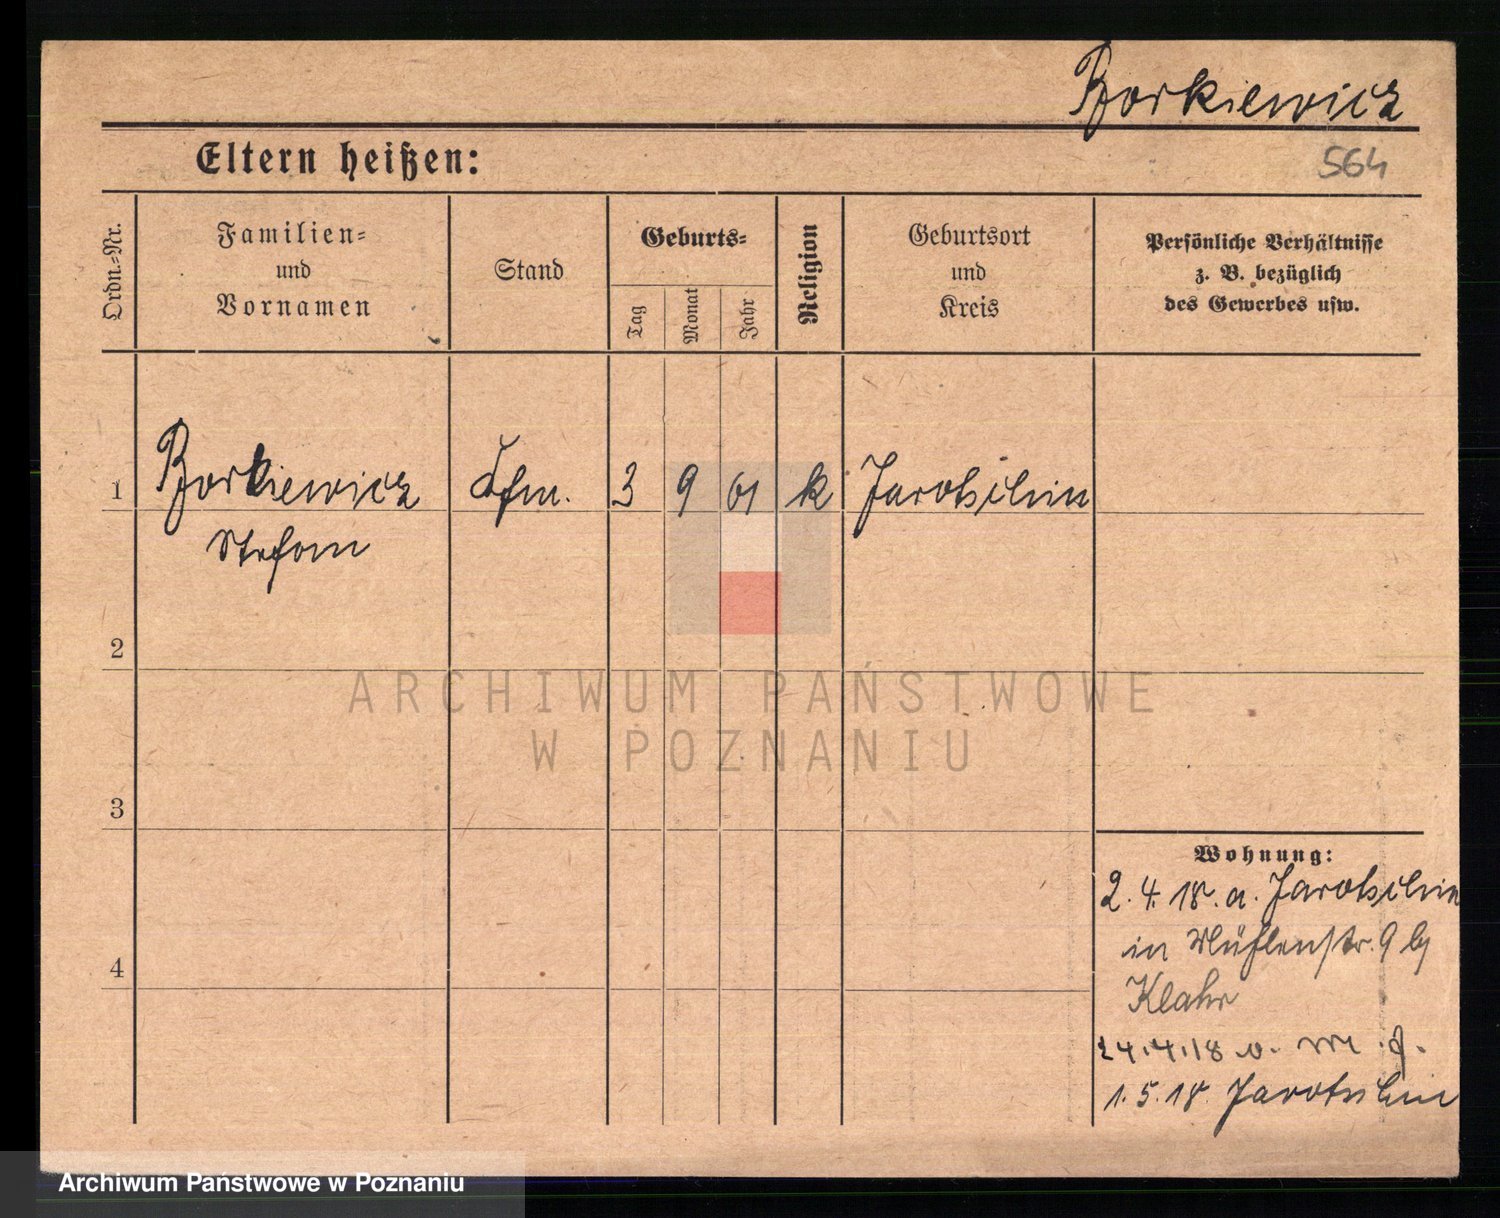 Borkiewicz
Eltern heißen:
564
Ordn.-Nr.
Familien-
und
Vornamen
Stand
Geburts-
Tag
Monat
Jahr
Religion
Geburtsort
und
Kreis
Persönliche Verhältnisse
z. B. bezüglich
des Gewerbes usw.
1 Borkiewicz Kfm. 3 9 61 k Jarotschin
Stefan
2
ARCHIWUM PAŃSTWOWE
W POZNANIU
3
Wohnung:
2.4.18. a. Jarotschin
in Mühlenstr. 9 by
Klahr
4
24.4.18 v.
1.5.18. Jarotschin
Archiwum Państwowe w Poznaniu